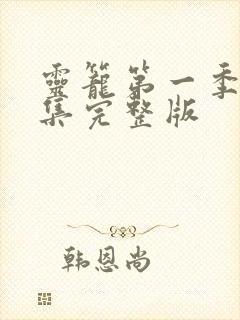 靈籠第一季
集完整版
韩恩尚